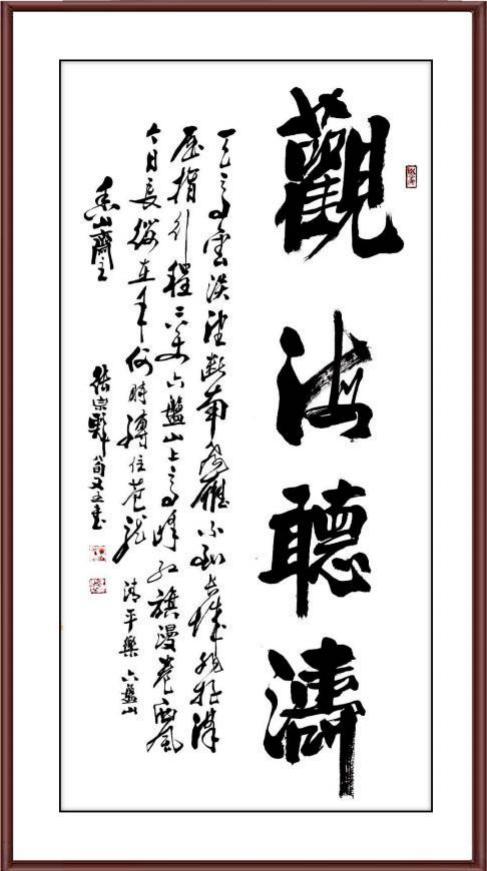 觀海聽濤
天高雲淡望斷南飛雁不到長城非好漢
屈指行程二萬六盤山上高峰紅旗漫卷西風
今日長纓在手何時縛住蒼龍 清平樂 六盤山
香山齋主
張宗 書